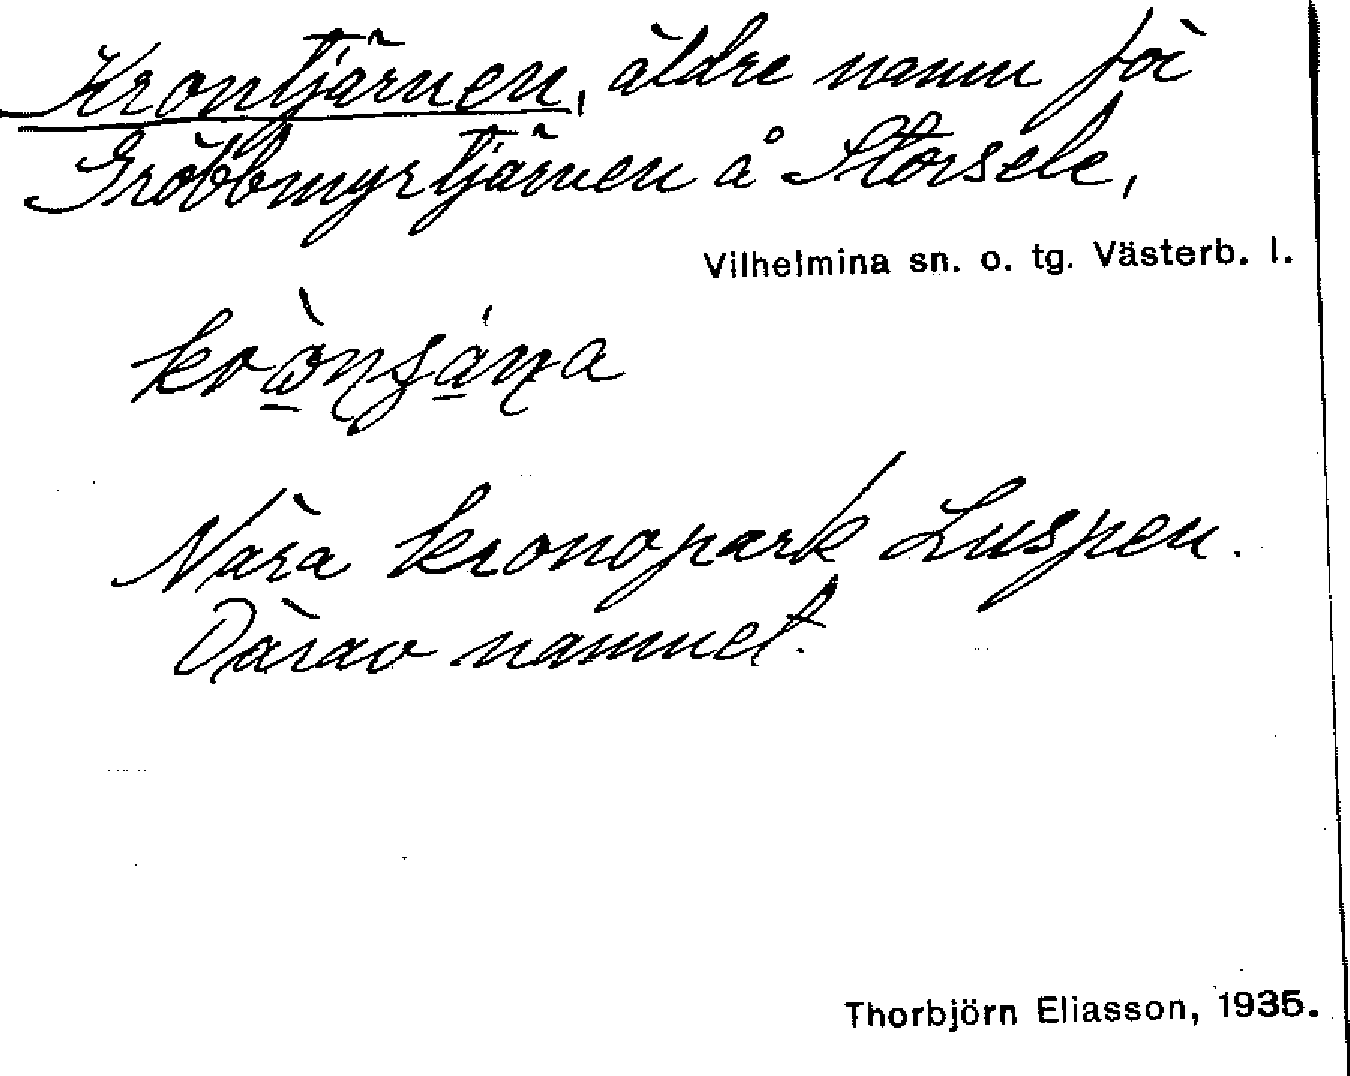 Krontjärnen, äldre namn för
Gröbbmyrtjärnen å Storsele,
Vilhelmina sn. o. tg. Västerb. l.
Nära kronopark Luspen.
Därav namnet.
Thorbjörn Eliasson, 1935.